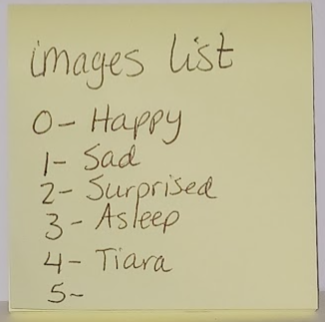 images list
0- Happy
1- Sad
2- Surprised
3- Asleep
4- Tiara
5-